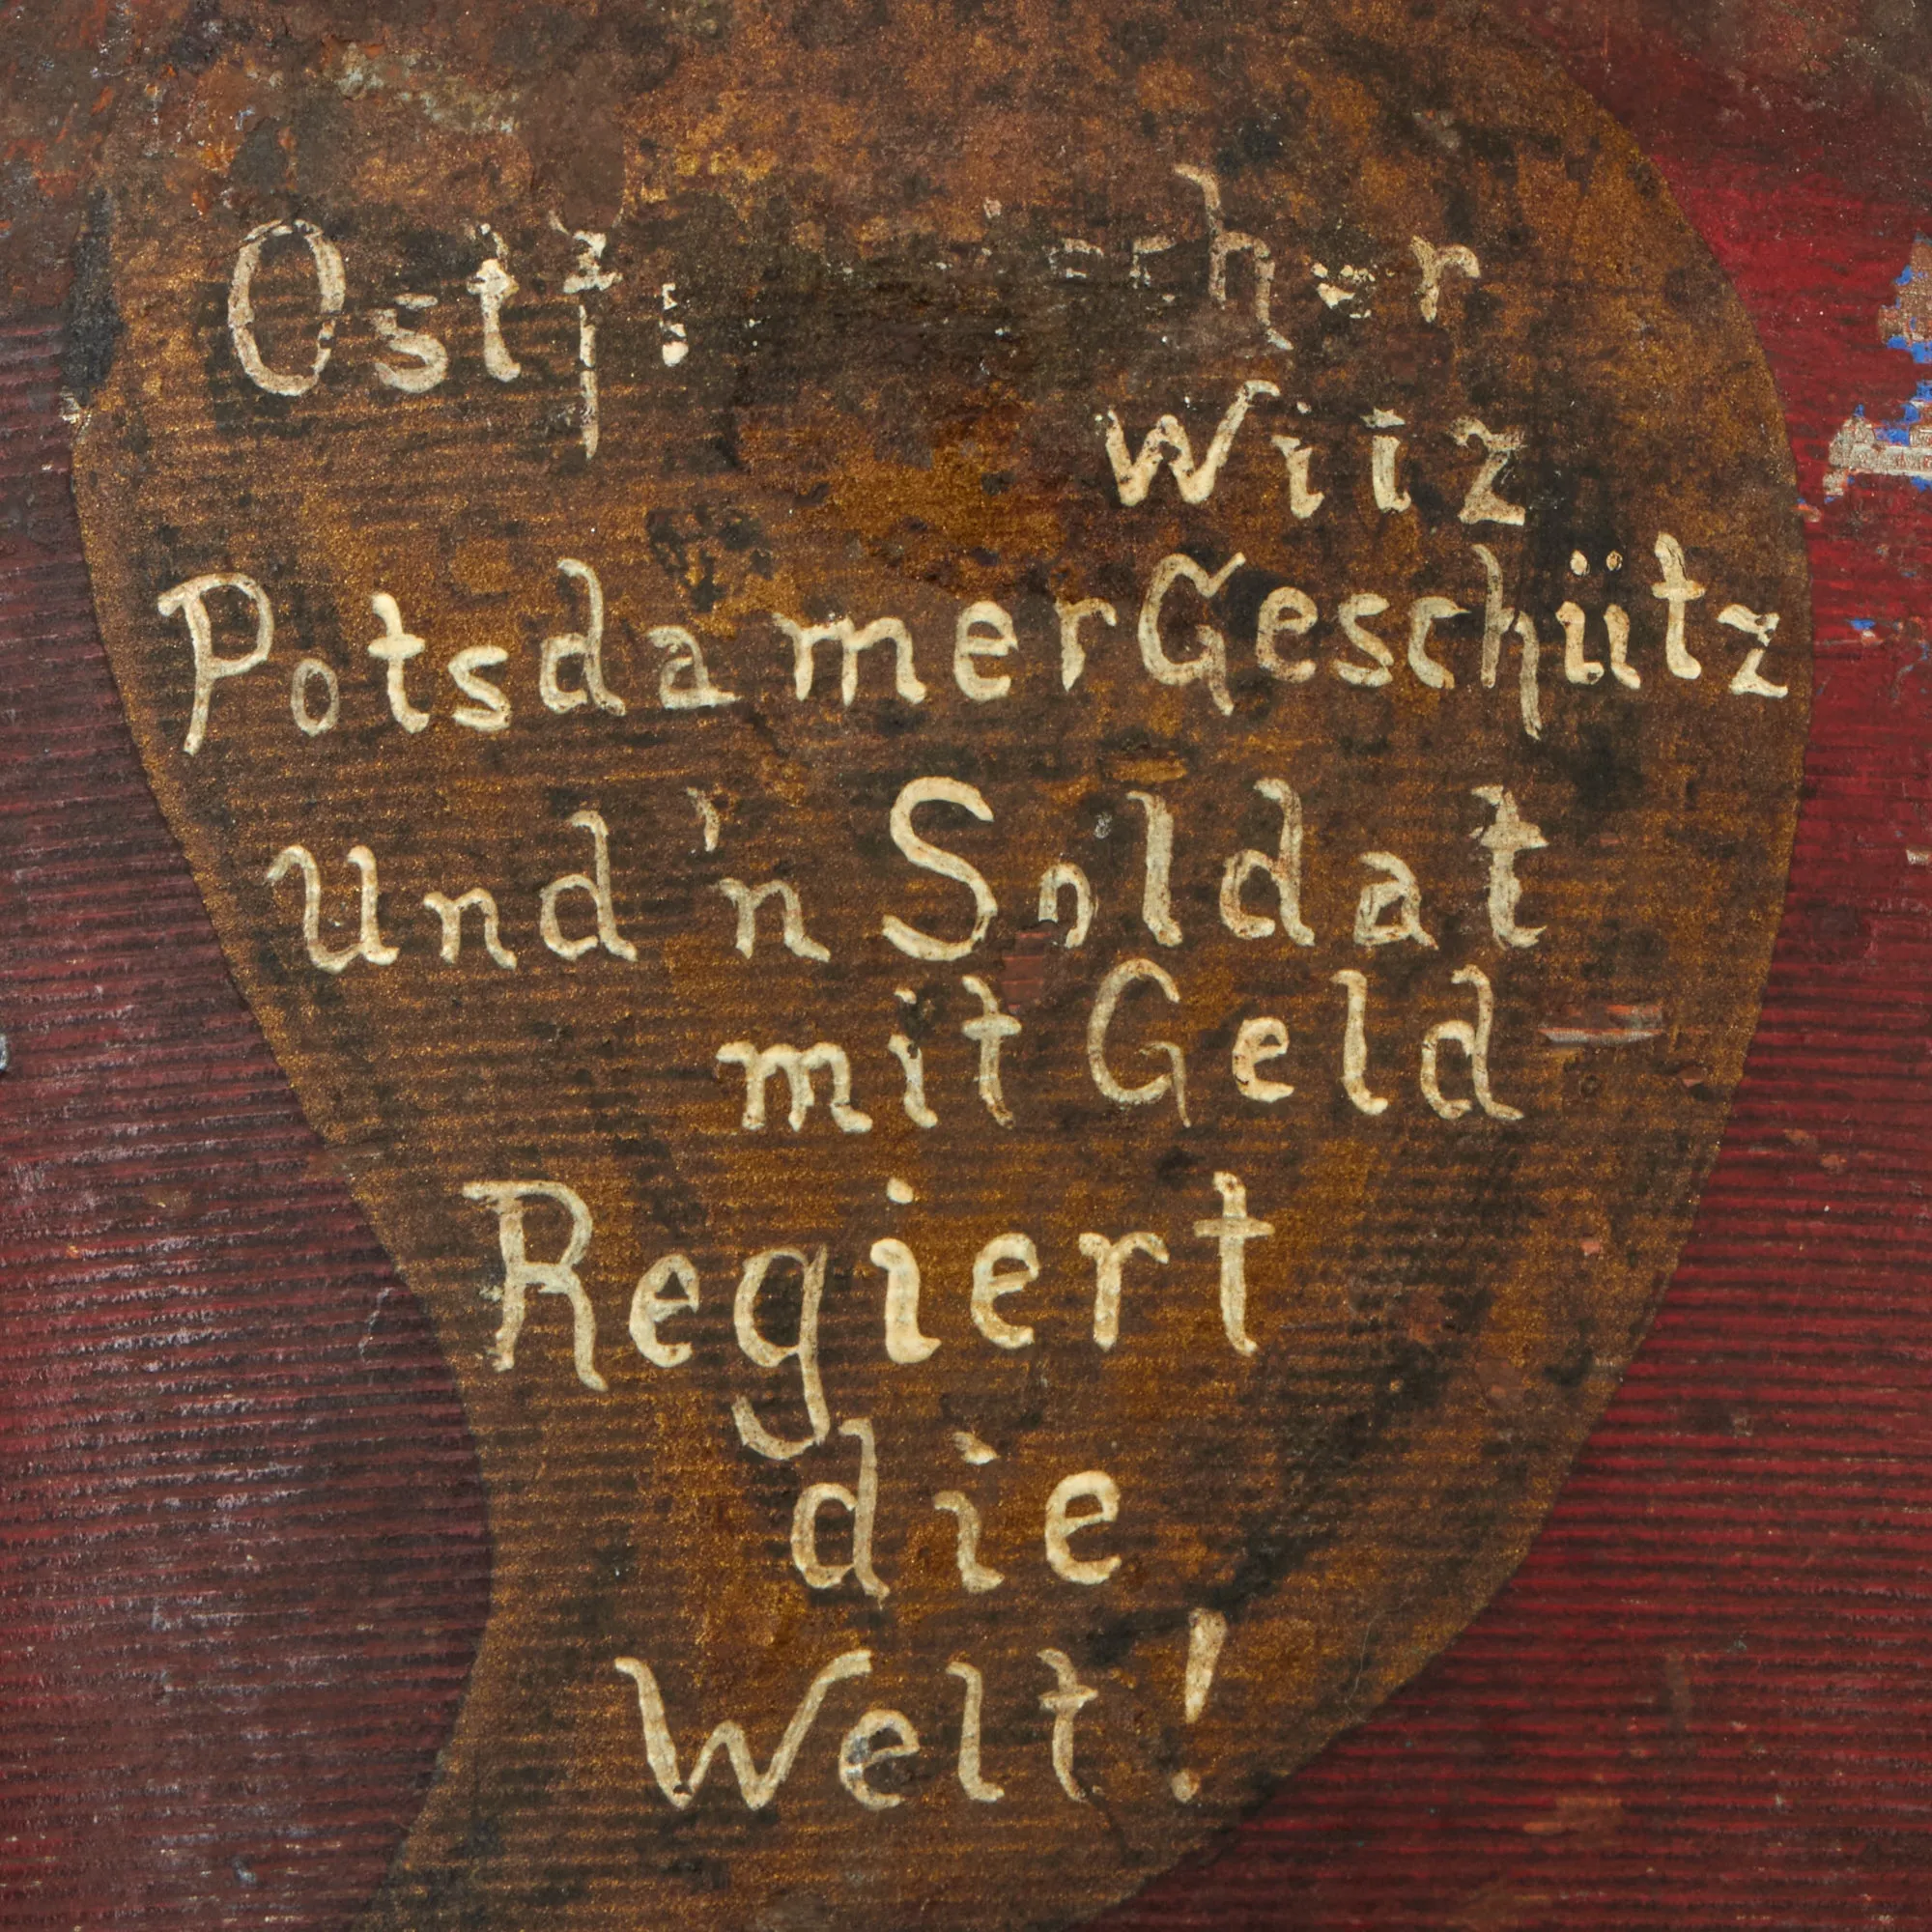 Witz
Potsdamer Geschütz
Und 'n Soldat
mit Geld
Regiert
die
Welt!